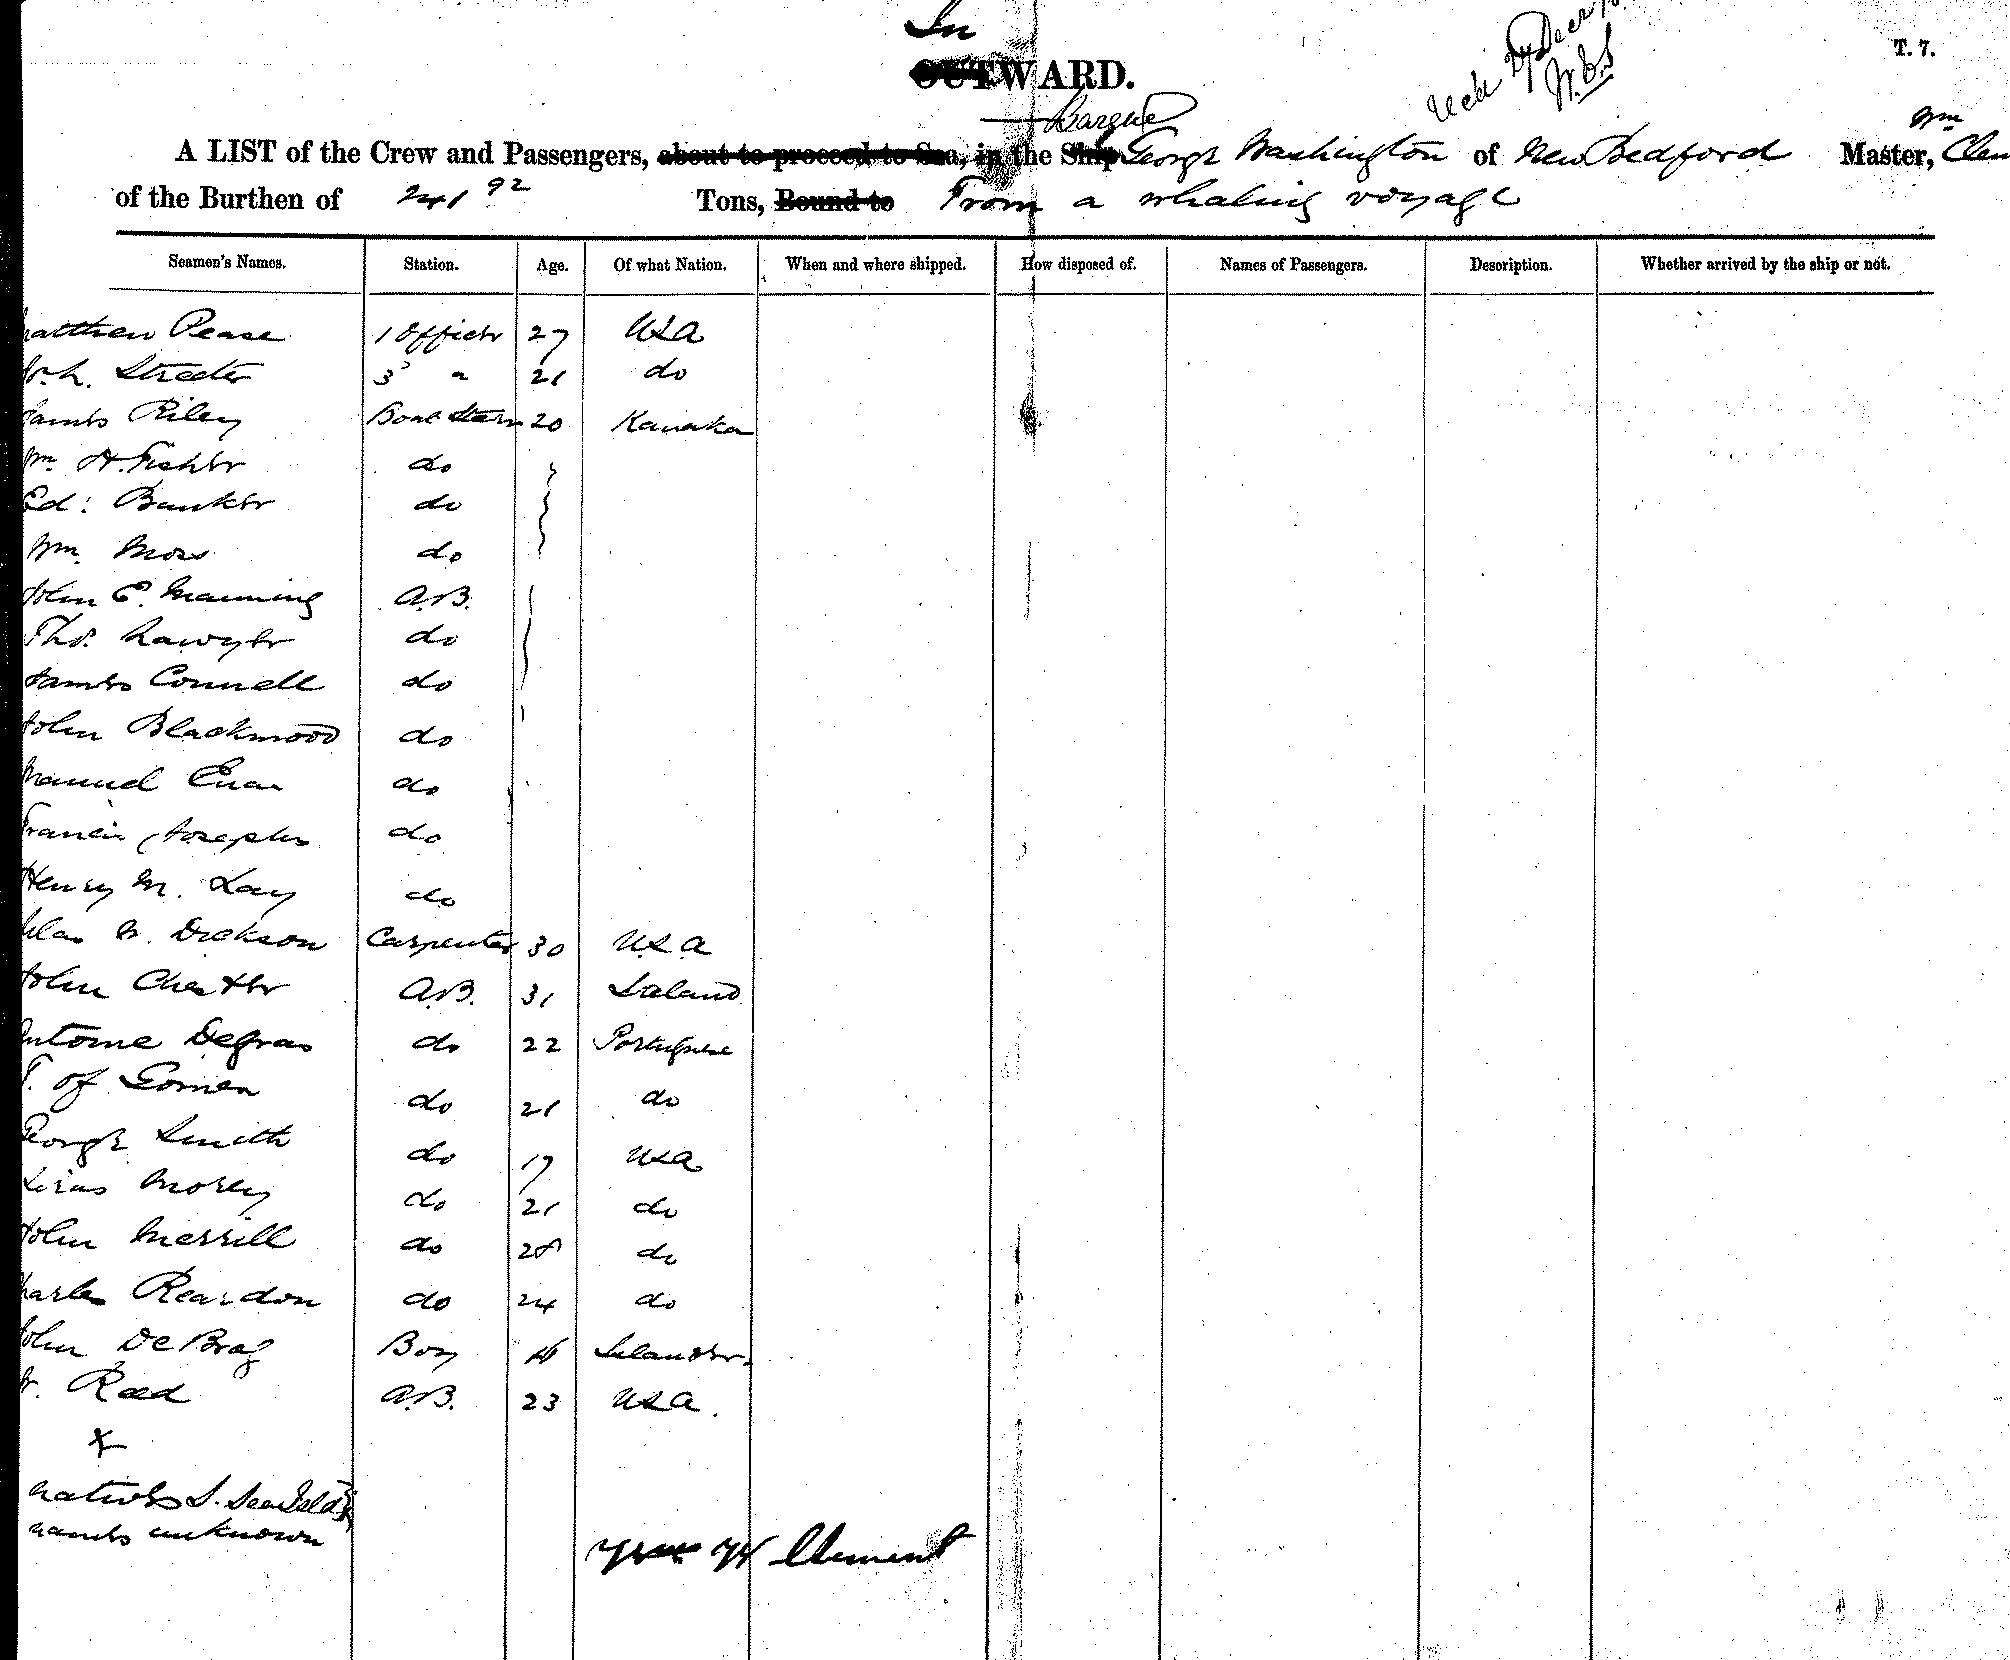 In
OUTWARD.
T. 7.
Barque
Wm
A LIST of the Crew and Passengers, about to proceed to Sea, in the Ship George Washington of New Bedford Master, Clem
of the Burthen of 241 92 Tons, Bound to From a whaling voyage
Seamen's Names. Station. Age. Of what Nation. When and where shipped. How disposed of. Names of Passengers. Description. Whether arrived by the ship or not.
Matthew Pease 1 Officer 27 USA
Streeter 3 " 21 do
James Riley Boat Steer 20 Kanaka
Wm H. Fisher do
Ed: Bunker do
Wm. Moss do
John E. Manning A.B.
Thos. Lawyer do
James Connell do
John Blackwood do
Manuel do
Francis Joseph do
Henry M. Lay do
Silas W. Dickson Carpenter 30 U.S.A
John Chester A.B. 31 Ireland
Antome Degras do 22 Portuguese
of Gomen do 21 do
George Smith do 19 USA
Morey do 21 do
John Merrill do 28 do
Charles Reardon do 24 do
John De Brag Boy 16 Islander.
W. Reed A.B. 23 USA.
natives S. Sea Islds
names unknown
Wm W Clement